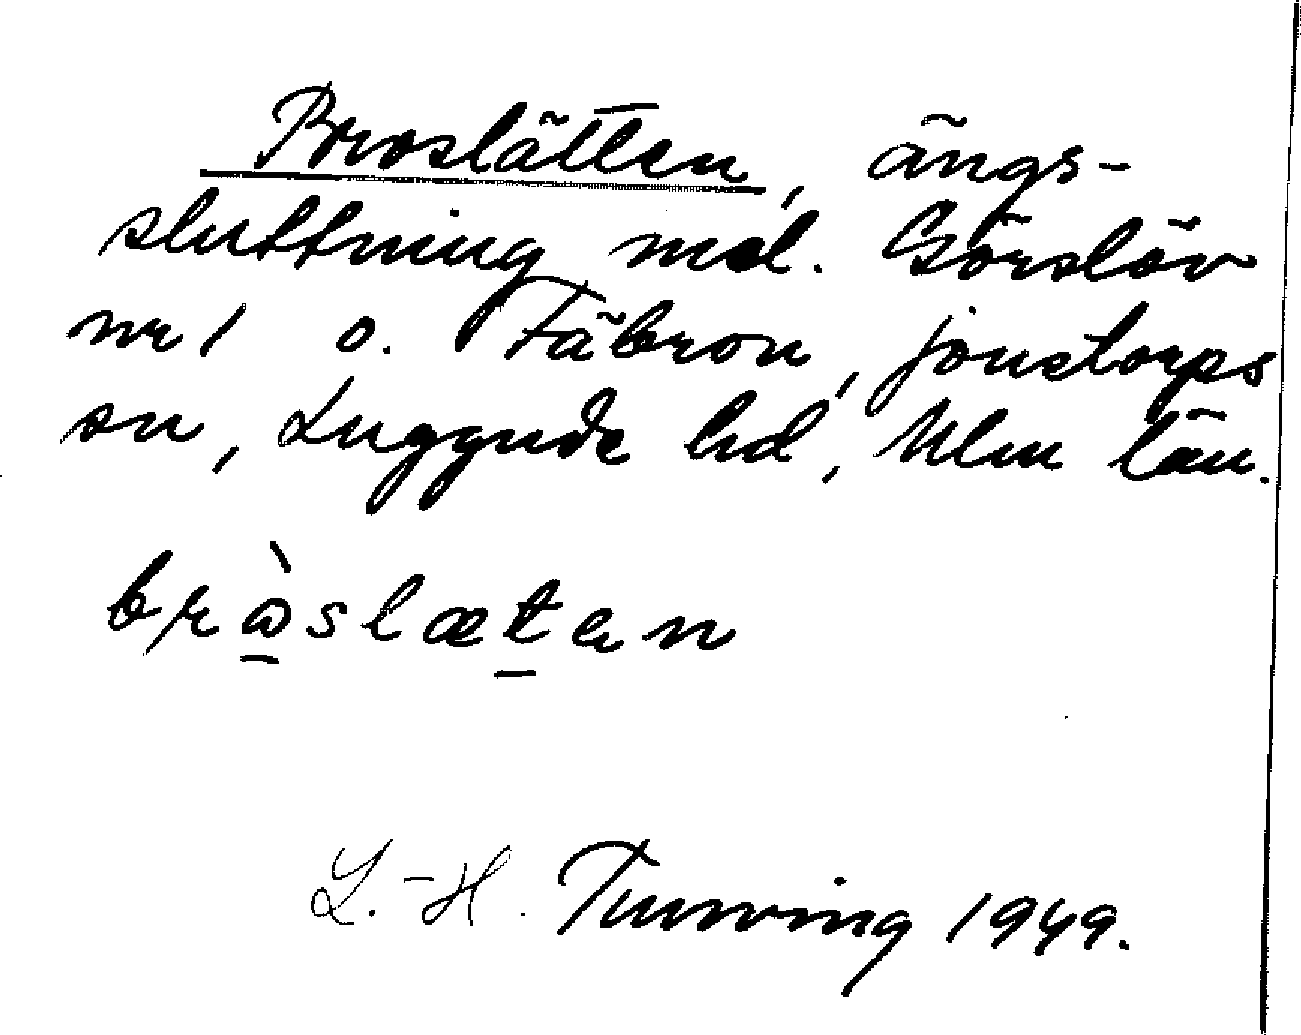 Broslätten, ängs-
sluttning mel. Görslöv
nr 1 o. Fäbron, Jonstorps
sn, Luggude hd, Mlm län.
brɷ̠̀slæt̠en
L.-H. Tunving 1949.